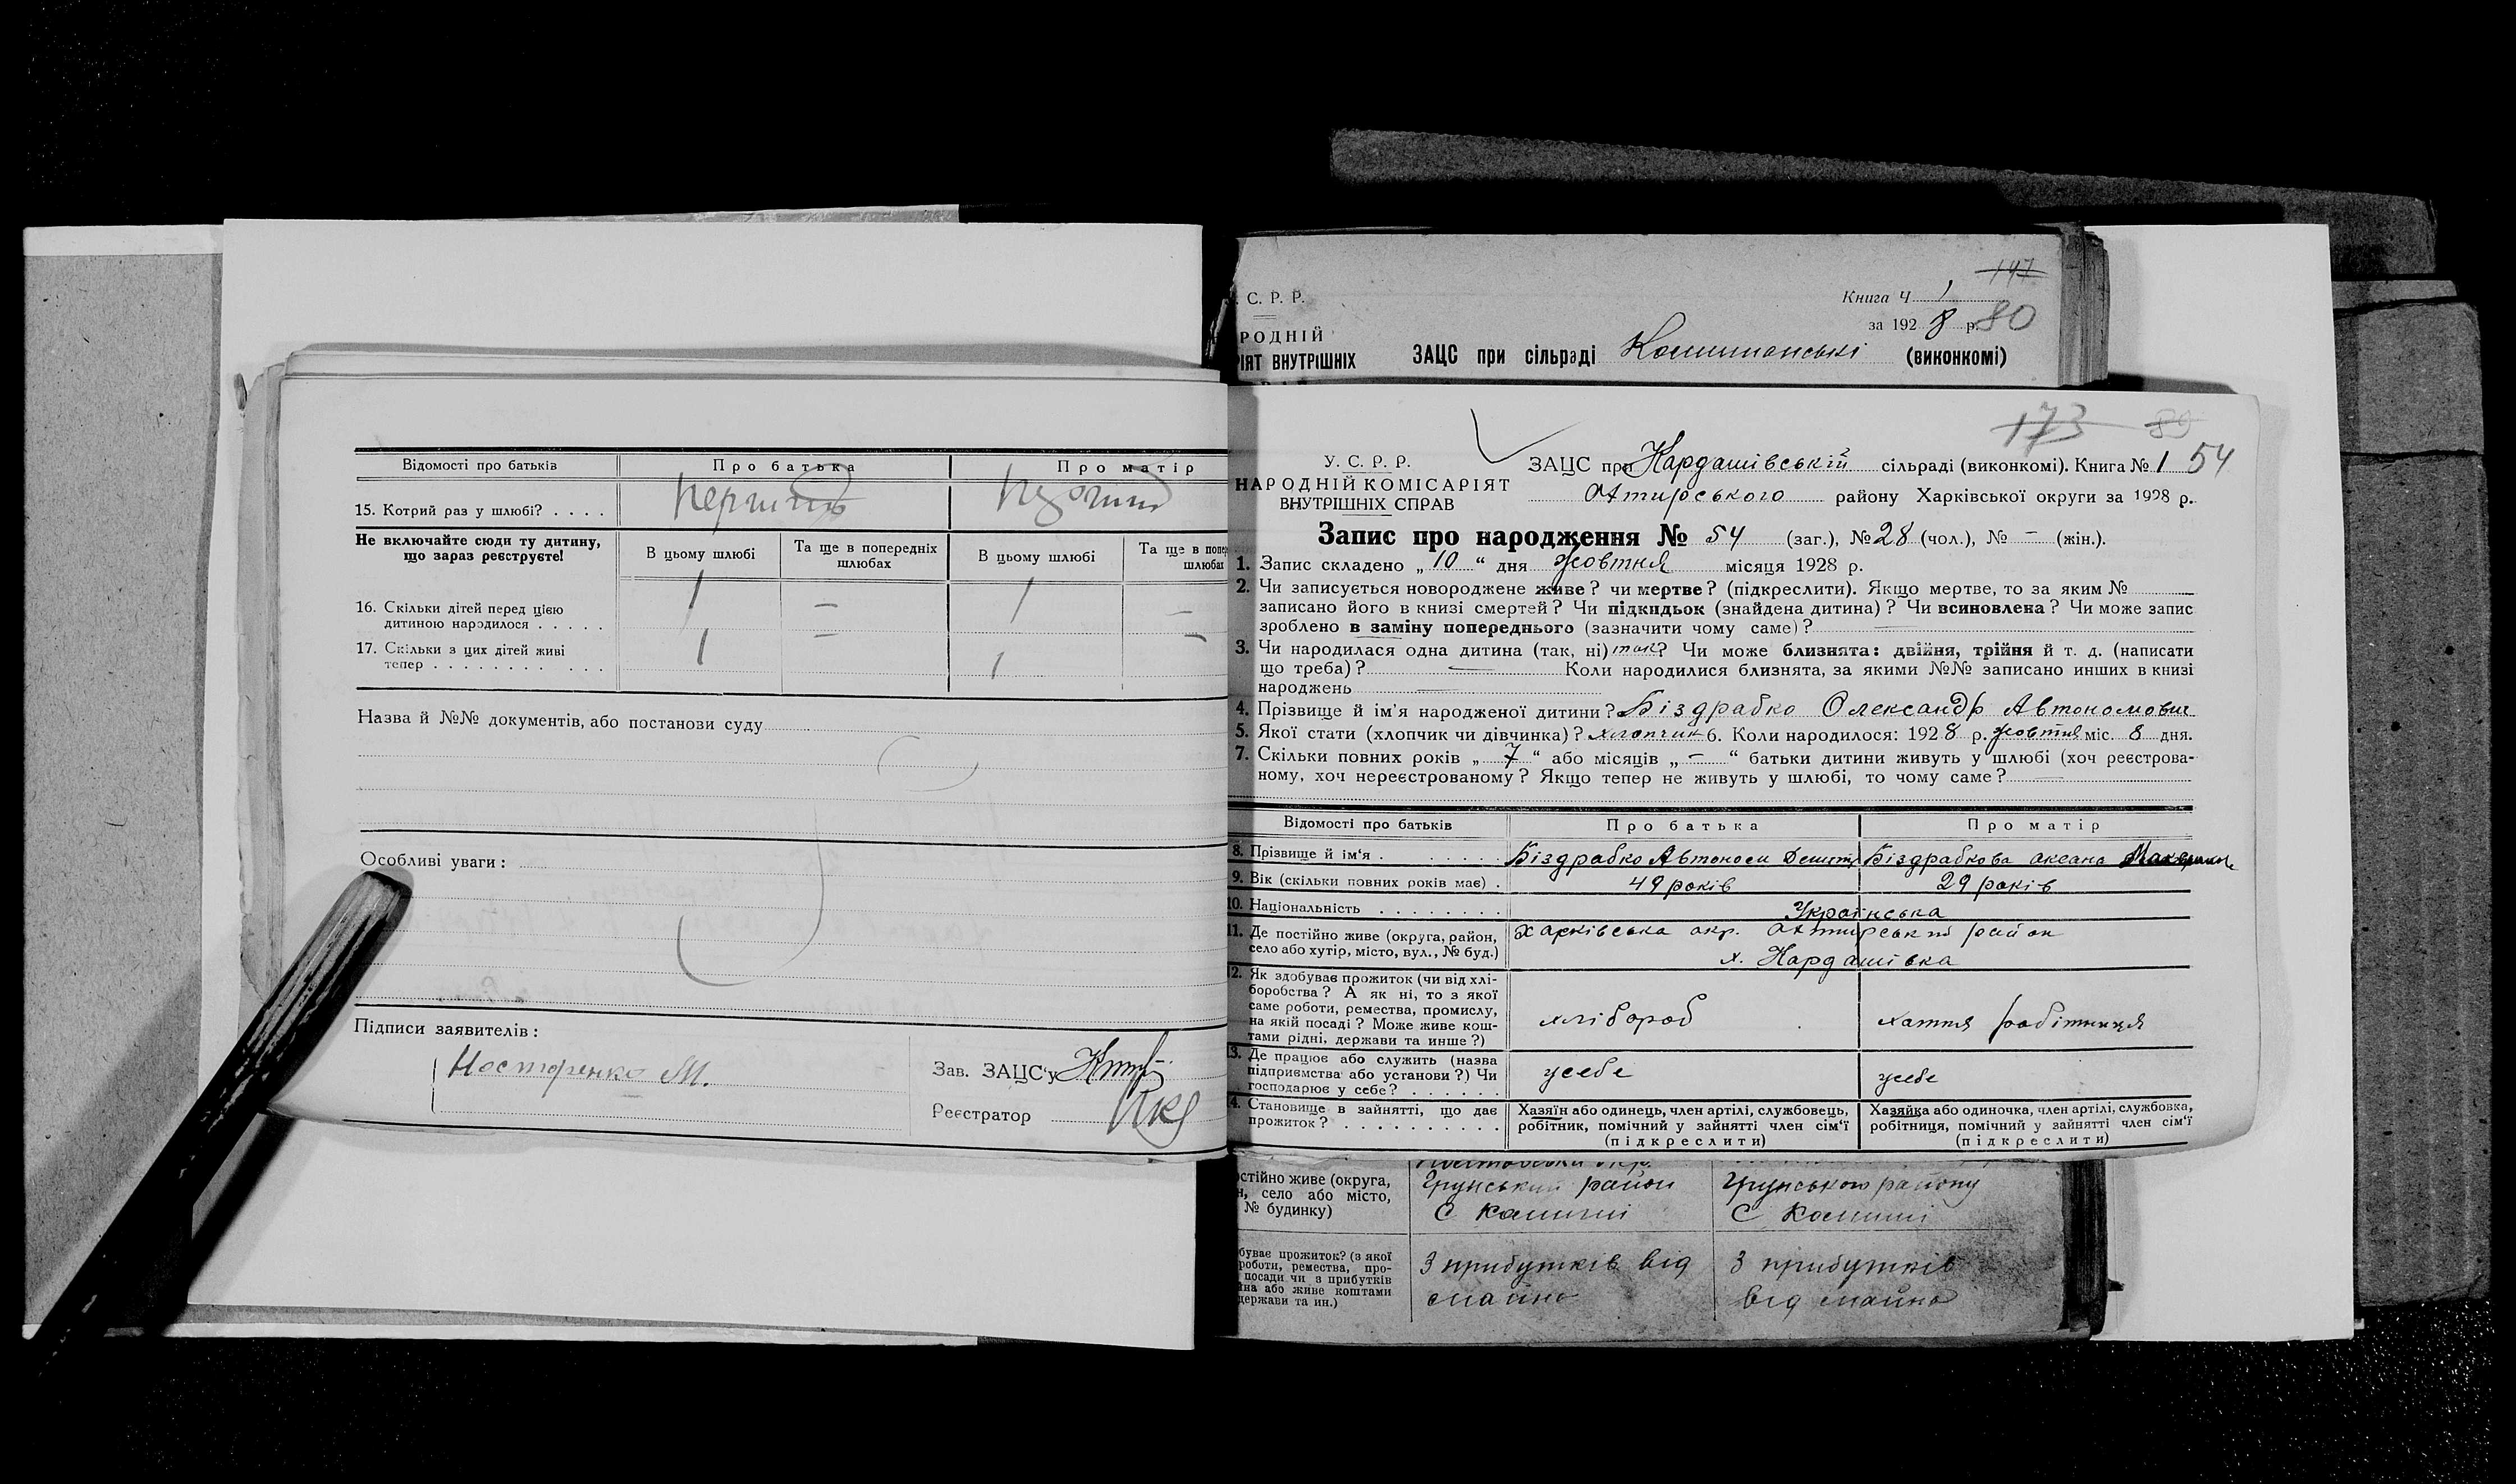 Відомості про батьків Про батька Про матір
15. Котрий раз у шлюбі? . . . .
Не включайте сюди ту дитину,
що зараз реєструєте!
В цьому шлюбі Та ще в попередніх В цьому шлюбі Та ще в попер
шлюбах шлюбах
16. Скільки дітей перед цією 1 — 1 —
дитиною народилося . . . . .
17. Скільки з цих дітей живі 1 — 1 —
тепер . . . . . . . . . . .
Назва й №№ документів, або постанови суду
Особливі уваги:
Підписи заявителів:
М.
Зав. ЗАЦС'у
Реєстратор
147
. С. Р. Р. Книга Ч 1
за 1928 р. 80
РОДНІЙ
ІЯТ ВНУТРІШНІХ ЗАЦС при сільраді (виконкомі)
173 89
У. С. Р. Р. ЗАЦС при Кардашівській сільраді (виконкомі). Книга № 1 54
НАРОДНІЙ КОМІСАРІЯТ Охтирського району Харківської округи за 1928 р.
ВНУТРІШНІХ СПРАВ
Запис про народження № 54 (заг.), № 28 (чол.), № — (жін.).
1. Запис складено „ 10 “ дня жовтня місяця 1928 р.
2. Чи записується новороджене живе? чи мертве? (підкреслити). Якщо мертве, то за яким №
записано його в книзі смертей? Чи підкидьок (знайдена дитина)? Чи всиновлена? Чи може запис
зроблено в заміну попереднього (зазначити чому саме)?
3. Чи народилася одна дитина (так, ні) так? Чи може близнята: двійня, трійня й т. д. (написати
що треба)? — Коли народилися близнята, за якими №№ записано инших в книзі
народжень —
4. Прізвище й ім'я народженої дитини? Біздрабко Олександр Автономович
5. Якої стати (хлопчик чи дівчинка)? 6. Коли народилося: 1928 р. жовтня міс. 8 дня.
7. Скільки повних років „ 7 “ або місяців „ — “ батьки дитини живуть у шлюбі (хоч реєстрова-
ному, хоч нереєстрованому? Якщо тепер не живуть у шлюбі, то чому саме? —
Відомості про батьків Про батька Про матір
8. Прізвище й ім'я . . . . . . Біздрабко Автоном Біздрабкова
9. Вік (скільки повних років має) . 49 років 29 років
10. Національність . . . . . . . . Українська
11. Де постійно живе (округа, район, Харківська окр. район
село або хутір, місто, вул., № буд.) х. Кардашівка
12. Як здобуває прожиток (чи від хлі-
боробства? А як ні, то з якої
саме роботи, ремества, промислу, хлібороб хатня робітниця
на якій посаді? Може живе кош-
тами рідні, держави та инше?)
13. Де працює або служить (назва
підприємства або установи?) Чи усебе усебе
господарює у себе? . . . . . .
14. Становище в зайнятті, що дає Хазяїн або одинець, член артілі, службовець, Хазяйка або одиночка, член артілі, службовка,
прожиток? . . . . . . . . . . робітник, помічний у зайнятті член сім'ї робітниця, помічний у зайнятті член сім'ї
(підкреслити) (підкреслити)
остійно живе (округа, район району
н, село або місто, С С
№ будинку)
буває прожиток? (з якої З прибутків від З прибутків
роботи, ремества, про- майна від майна
посади чи з прибутків
йна або живе коштами
держави та ин.)